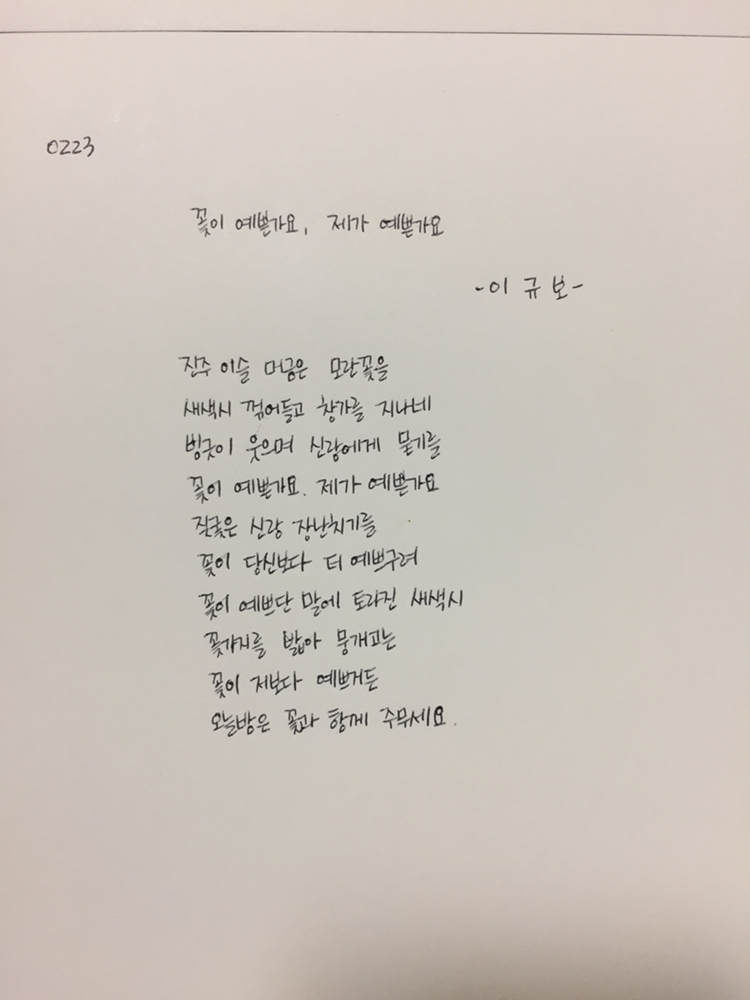 0223
꽃이 예쁜가요, 제가 예쁜가요
-이규보-
진주 이슬 머금은 모란꽃을
새색시 꺾어들고 창가를 지나네
빙긋이 웃으며 신랑에게 묻기를
꽃이 예쁜가요. 제가 예쁜가요
짓궂은 신랑 장난치기를
꽃이 당신보다 더 예쁘구려
꽃이 예쁘단 말에 토라진 새색시
꽃가지를 밟아 뭉개고는
꽃이 저보다 예쁘거든
오늘밤은 꽃과 함께 주무세요.